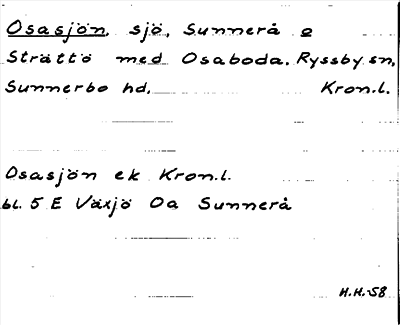 Osasjön, sjö, Sunnerå o
Strättö med Osaboda. Ryssby sn,
Sunnerbo hd. Kron.l.
Osasjön ek Kron.l.
bl. 5 E Växjö Oa Sunnerå
H.H.-58